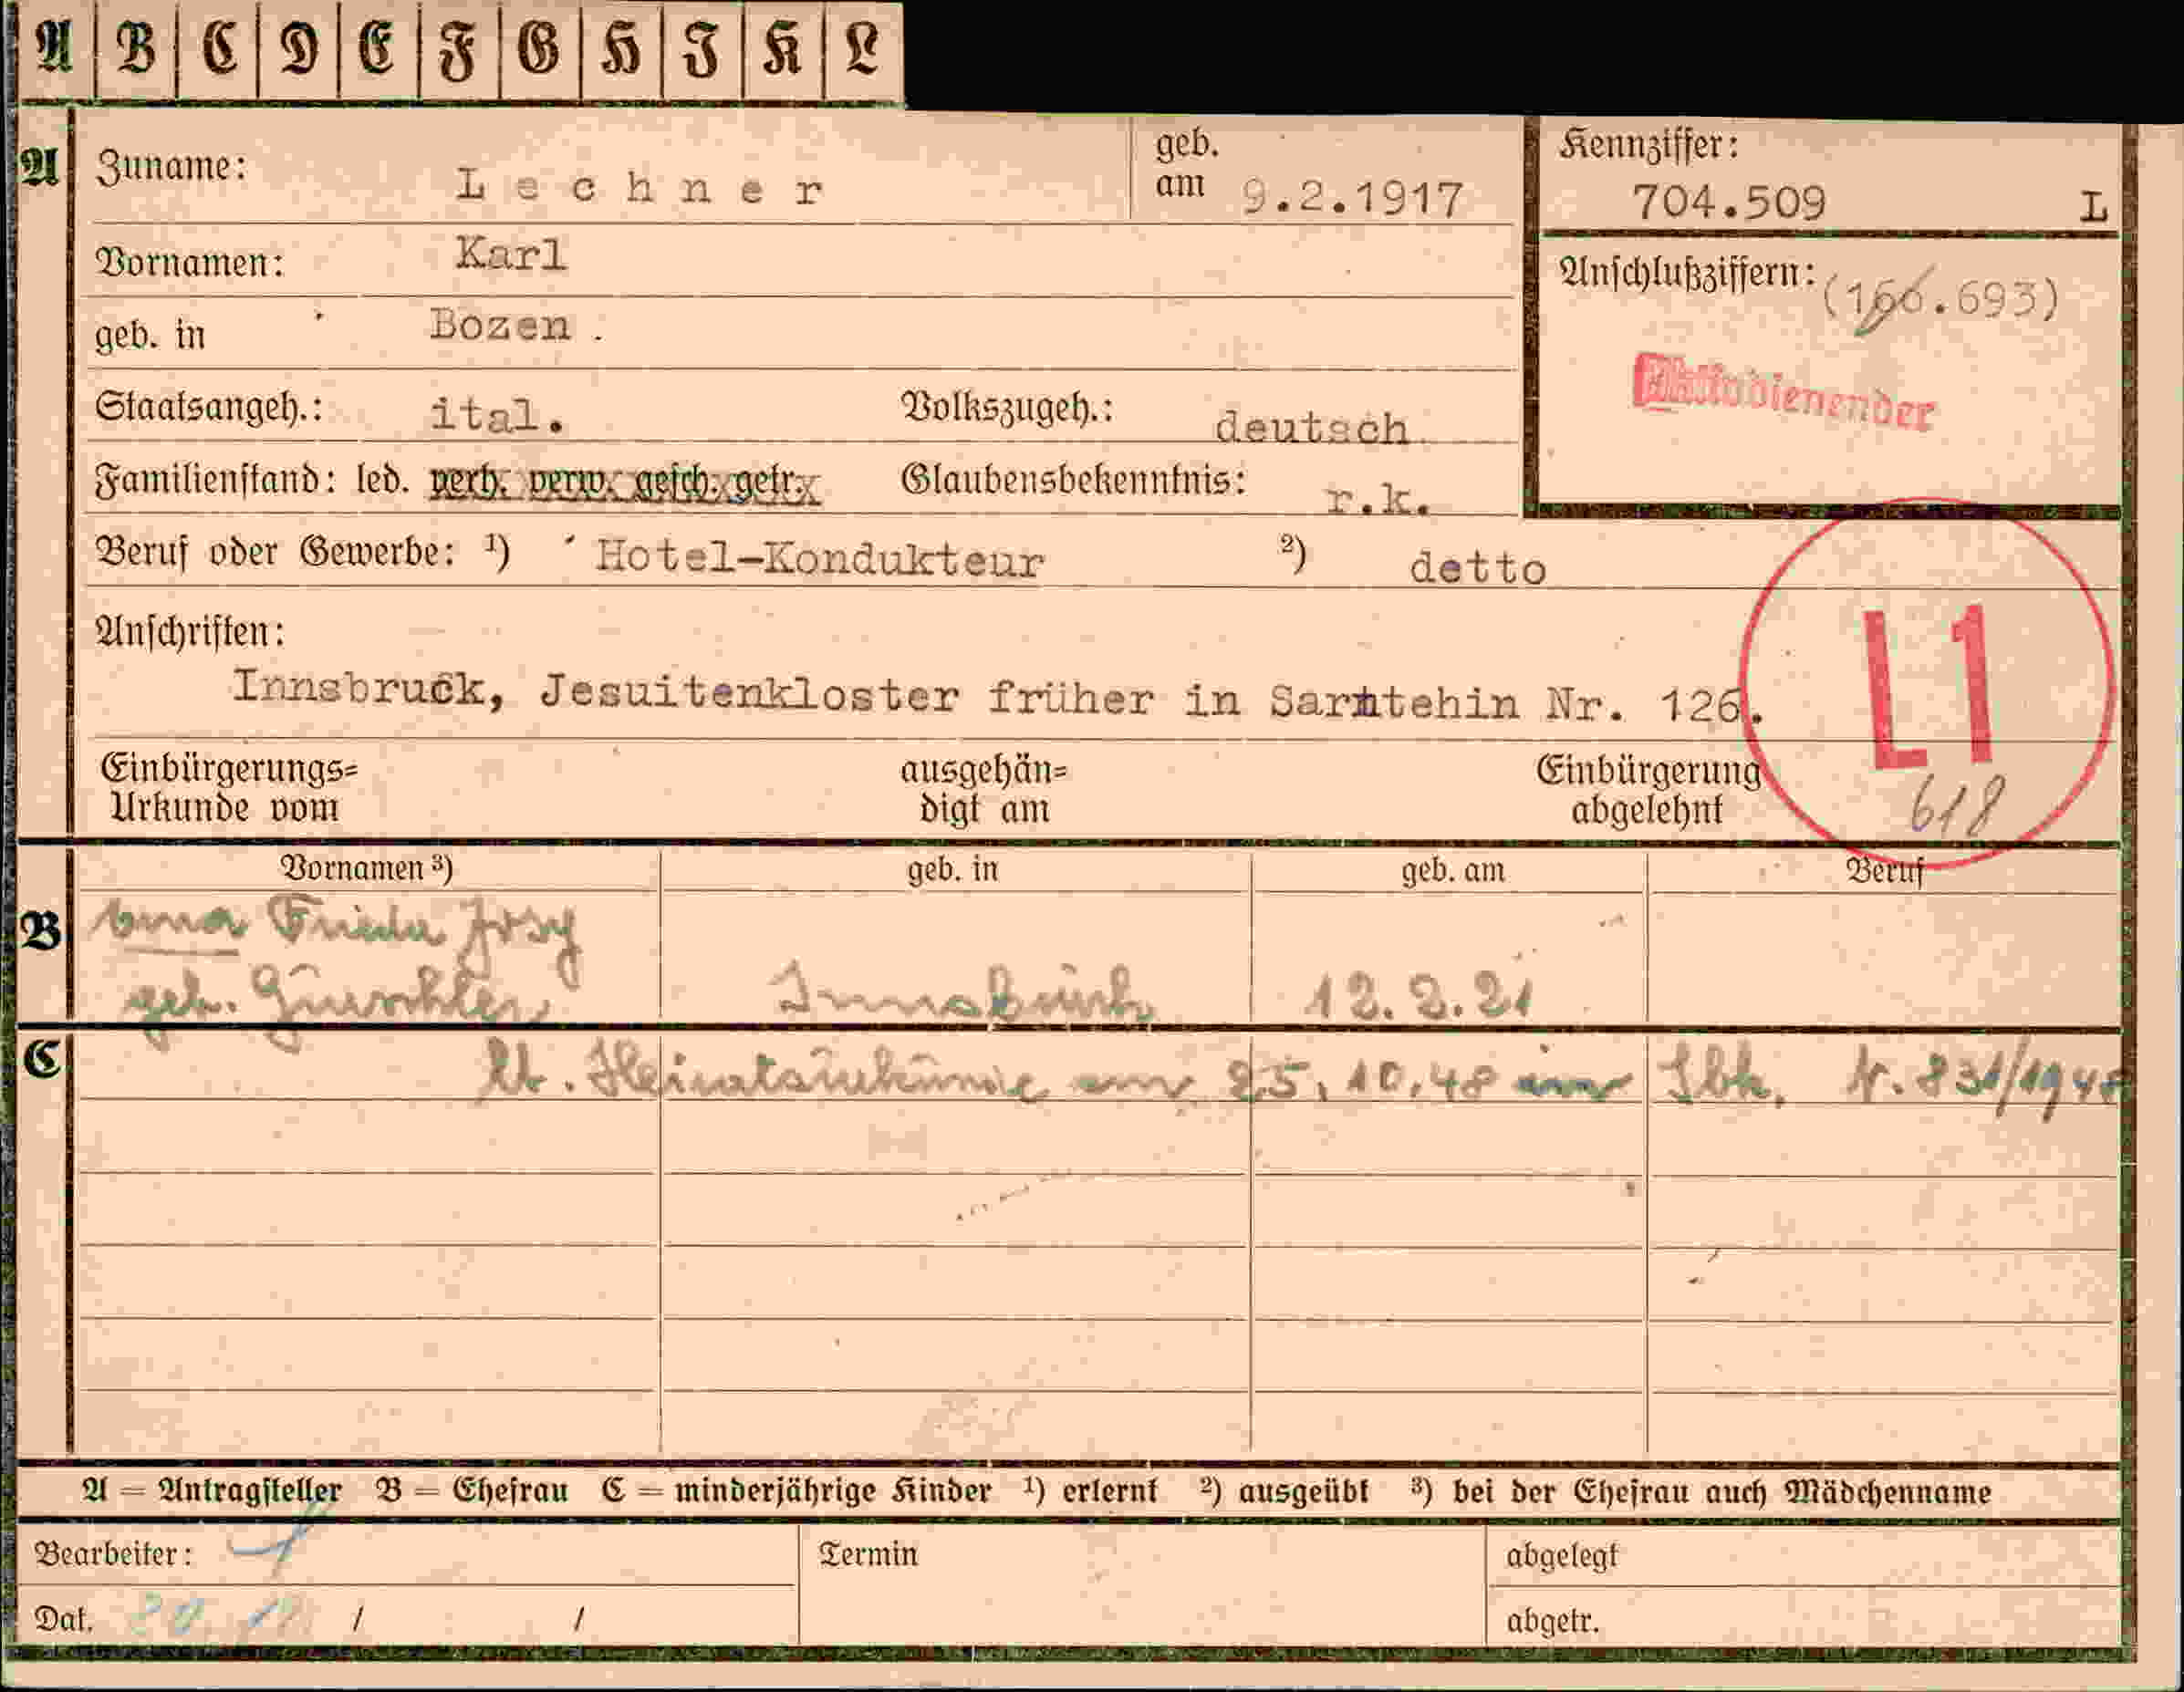 A B C D E F G H I K L
A
Zuname: Lechner
geb. am 9.2.1917
Kennziffer:
704.509 L
Vornamen: Karl
Anschlußziffern: (166.693)
geb. in Bozen .
Staatsangeh.: ital. Volkszugeh.: deutsch
Familienstand: led. verh. verw. gesch. getr. Glaubensbekenntnis: r.k.
Beruf oder Gewerbe: ¹) Hotel-Kondukteur ²) detto
Anschriften:
Innsbruck, Jesuitenkloster früher in Sarntehin Nr. 126.
L1
618
Einbürgerungs=
Urkunde vom
ausgehän=
digt am
Einbürgerung
abgelehnt
Vornamen ³) geb. in geb. am Beruf
B
Frieda Josy
geb. Innsbruck 12.2.21
C
lt. Heiratsurkunde am 25.10.48 in Ibk. Nr. 831/1948
A = Antragsteller B = Ehefrau C = minderjährige Kinder ¹) erlernt ²) ausgeübt ³) bei der Ehefrau auch Mädchenname
Bearbeiter:
Termin
abgelegt
Dat. / /
abgetr.